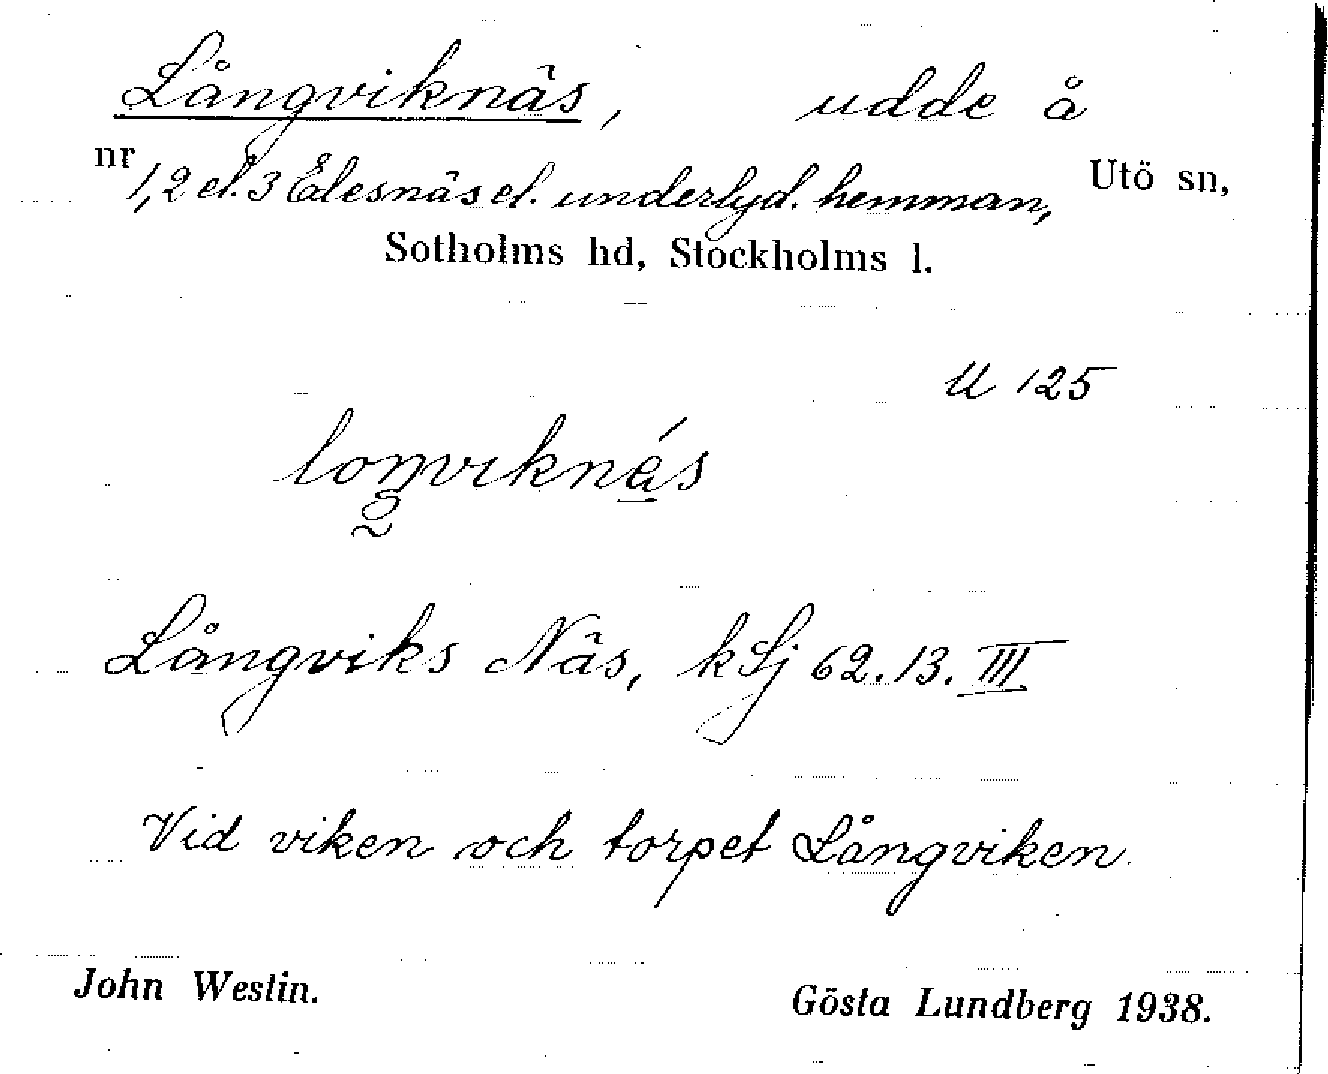 Långviknäs, udde å
nr 1,2 el. 3 Ålesnäs el. underlyd. hemman, Utö sn,
Sotholms hd, Stockholms l.
U 125
Långviks Näs, kSj 62.13.III
Vid viken och torpet Långviken.
John Westin. Gösta Lundberg 1938.